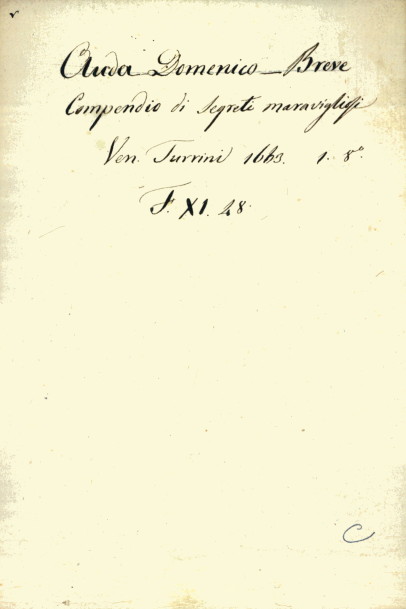 Auda Domenico - Breve
Compendio di segreti maravigliosi
Ven. Turrini 1663. 1. 8º.
F. XI. 28.
C